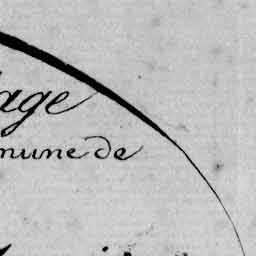 age
mune de